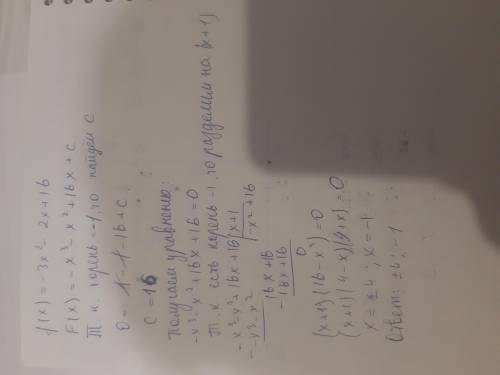 f(x) = -3x² - 2x + 16
F(x) = -x³ - x² + 16x + C
Т.к. корень = -1, то найдём C
0 = 1 - 1 - 16 + C.
C = 16
Получаем уравнение:
-x³ - x² + 16x + 16 = 0
Т.к. есть корень -1, то разделим на (x+1)
-x³ - x² + 16x + 16 | x+1
-x³ - x² | -x² + 16
16x + 16
- 16x + 16
0
(x+1)(16 - x²) = 0
(x+1)(4 - x)(4 + x) = 0
x = ±4; x = -1
Ответ: ±4; -1